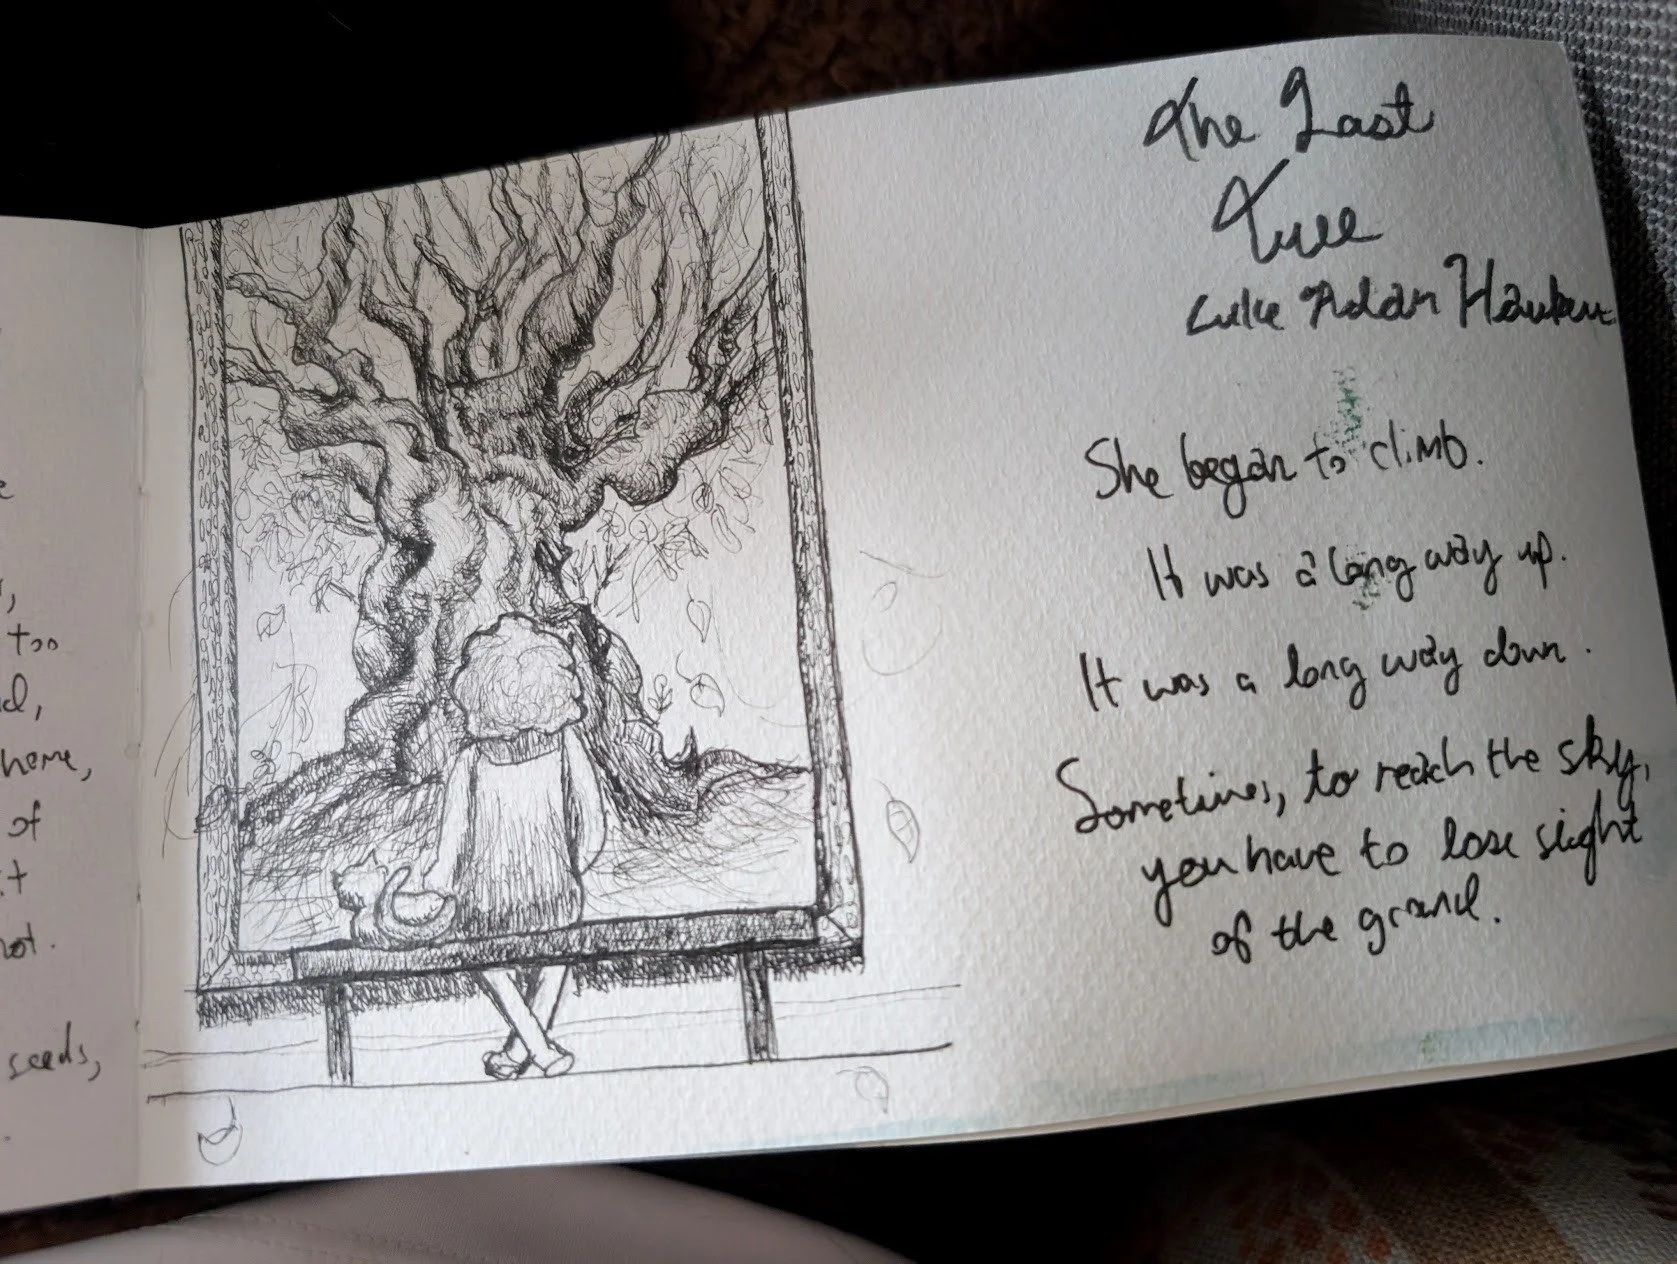 too
home,
of
not.
seeds,
The Last
Tree
Luke Adam Hawker
She began to climb.
It was a long way up.
It was a long way down.
Sometimes, to reach the sky,
you have to lose sight
of the ground.